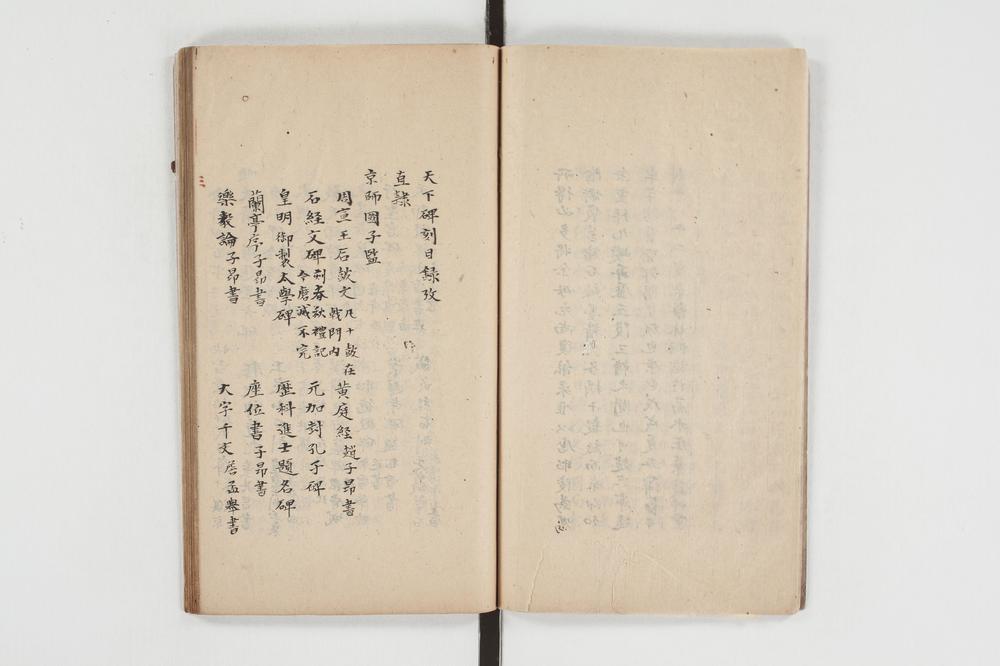 天下碑刻目錄攷
直隸
京師國子監
周宣王石鼓文 凡十鼓在戟門內 黃庭經 趙子昂書
石經文碑 刻春秋禮記今磨滅不完 元加封孔子碑
皇明御製太學碑 歷科進士題名碑
蘭亭序 子昂書 座位書 子昂書
樂毅論 子昂書 大字千文 詹孟舉書